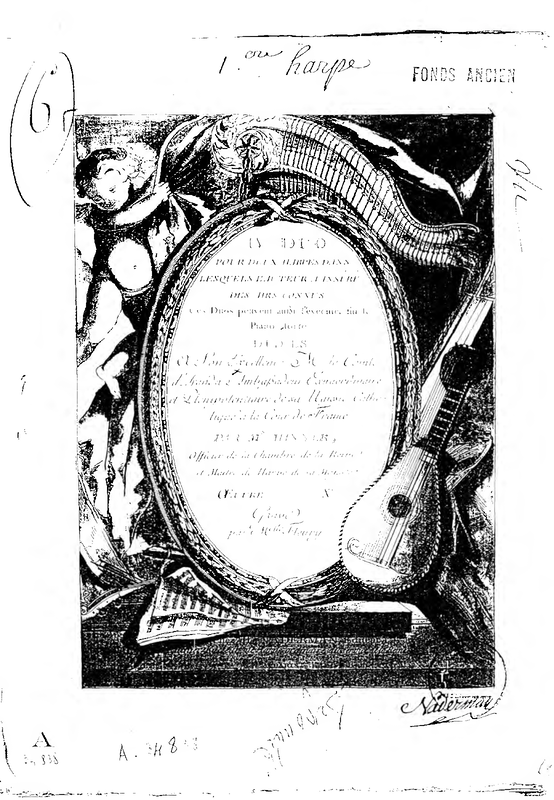 1.ere harpe
FONDS ANCIEN
(6)
IV DUO
POUR DEUX HARPES DANS
LESQUELS L'AUTEUR A INSÉRÉ
DES AIRS CONNUS
Ces Duos peuvent aussi s'executer sur le
Piano forte
DEDIÉS
A Son Excellence M. le Comte
d'Aranda Ambassadeur Extraordinaire
et Plenipotentiaire de sa Maj. Catho-
lique a la Cour de France
PAR M. HINNER,
Officier de la Chambre de la Reine
et Maitre de Harpe de sa Majesté
ŒUVRE X
Gravé
par Melle Fleury
Naderman
A
34 838
A. 34 838